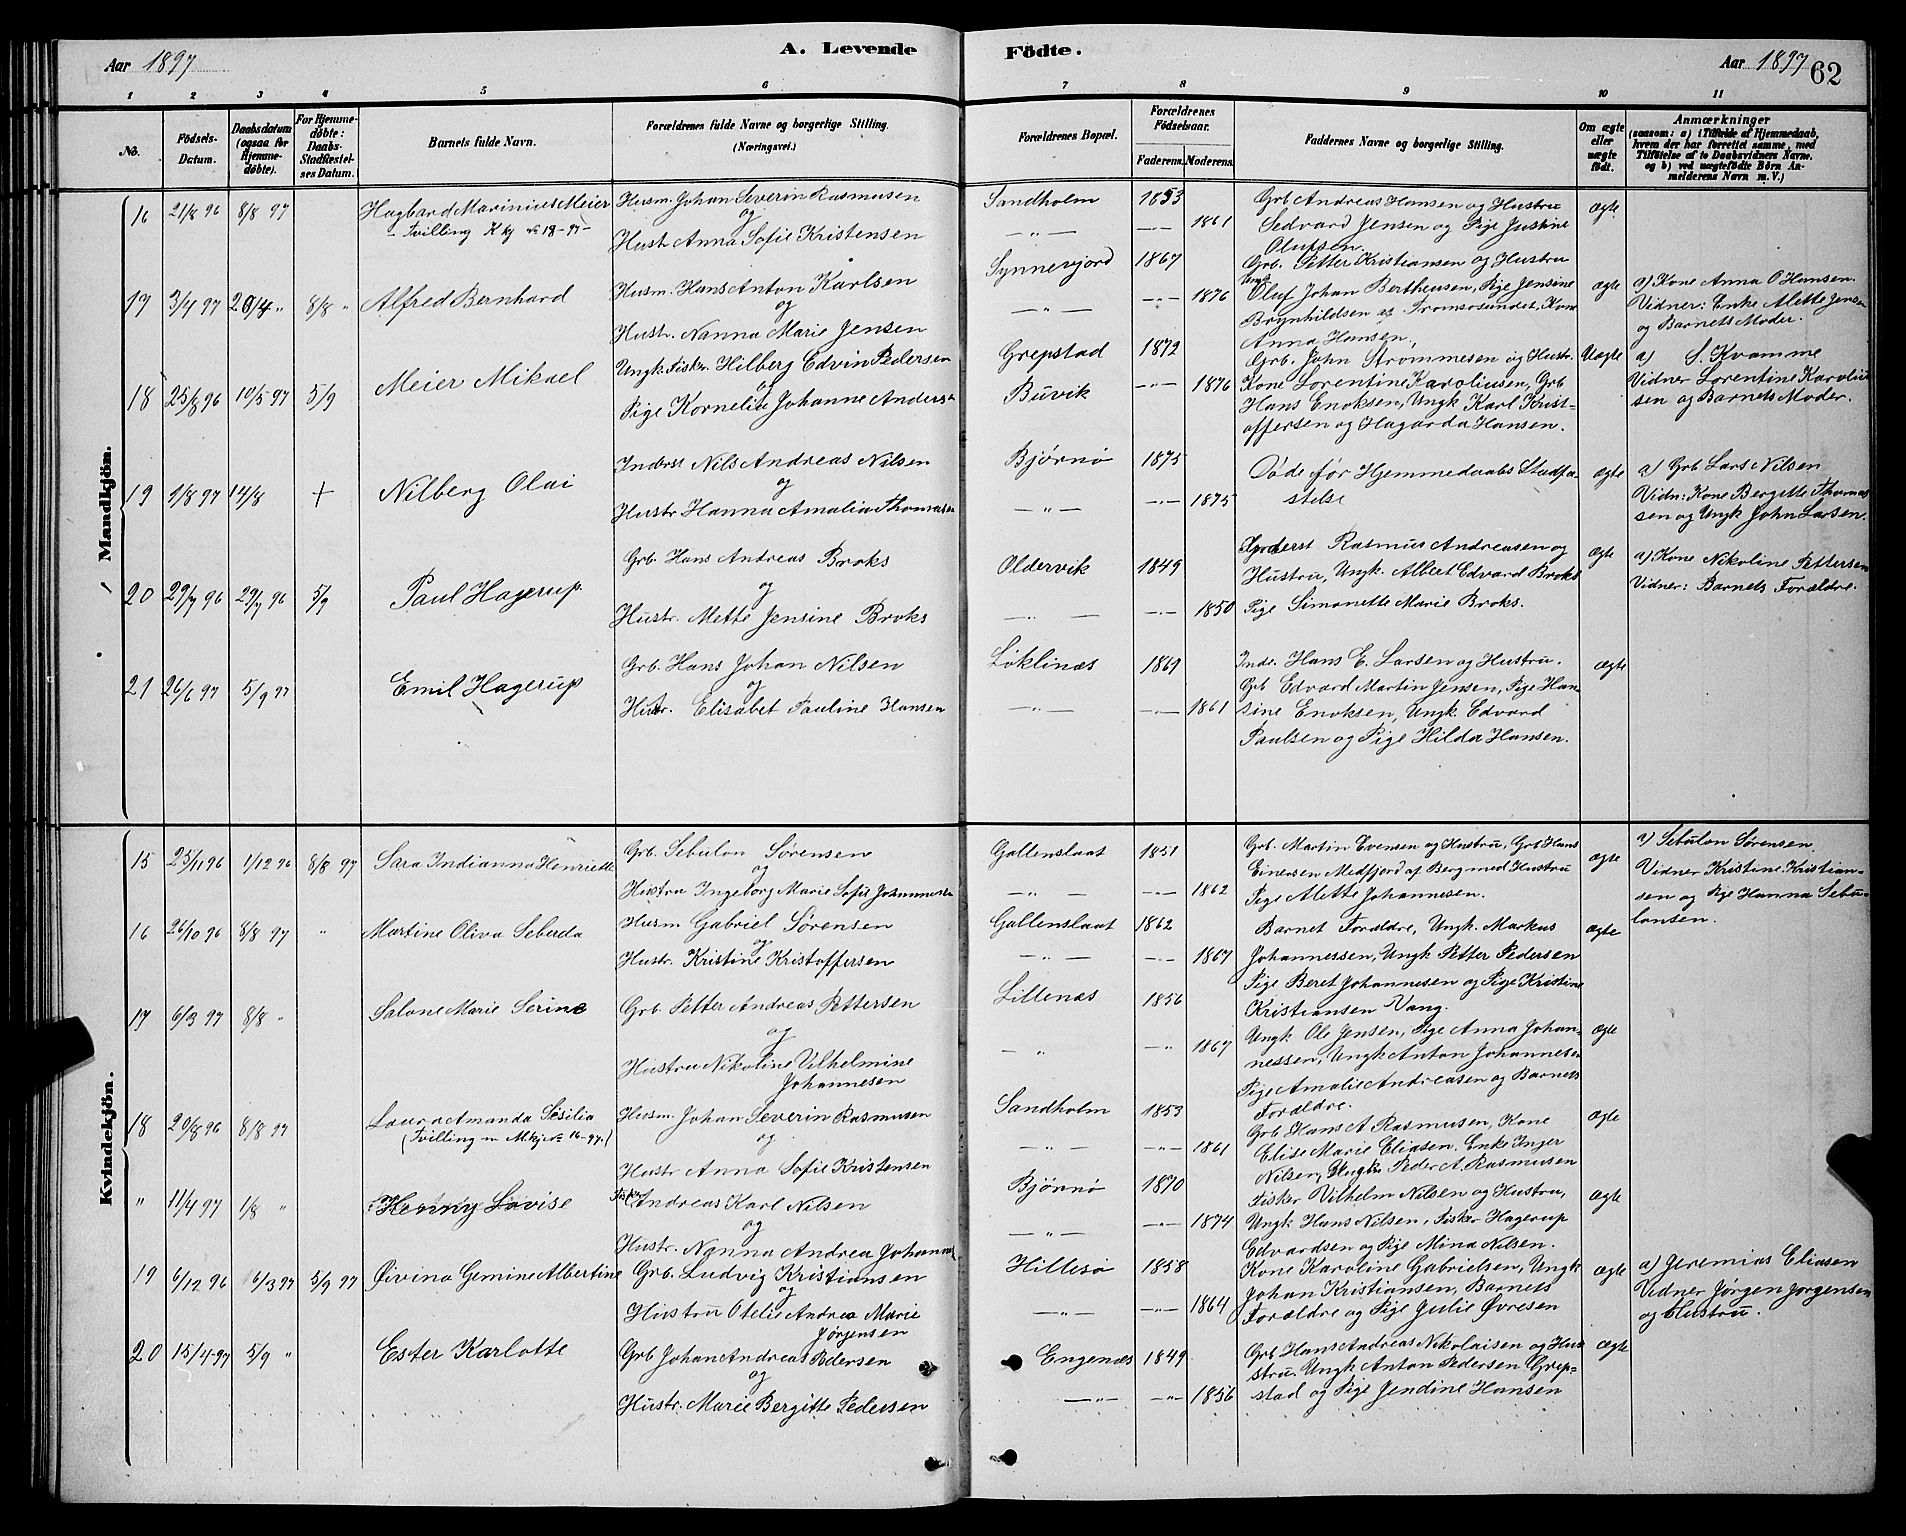 Aar 1897
A. Levende
Födte.
Aar 1897
62
1 2 3 4 5 6 7 8 9 10 11
No.
Födsels-Datum.
Daabsdatum (ogsaa for Hjemmedöbte).
For Hjemmedöbte: Daabs-Stadfæstelses Datum.
Barnets fulde Navn.
Forældrenes fulde Navne og borgerlige Stilling.
(Næringsvei.)
Forældrenes Bopæl.
Forældrenes Födselsaar.
Faderens. Moderens.
Faddernes Navne og borgerlige Stilling.
Om ægte eller uægte födt.
Anmærkninger
(saasom: a) i Tilfælde af Hjemmedaab,
hvem der har forrettet samme, med
Tilföielse af to Daabsvidners Navne,
og b) ved uægtefödte Börn An-
melderens Navn m. V.)
Mandkjön.
16 21/8 96 8/8 97 Hagbard Marinius Meier
- Tvilling K kj No 18-97-
Husm. Johan Severin Rasmusen
og
Hustr Anna Sofie Kristensen
Sandholm 1853
1861
Grb Andreas Hansen og Hustru
Sedvard Jensen og Pige Justine
Olufsen.
ægte
17 3/4 97 20/4 " 8/8 " Alfred Bernhard
Husm. Hans Anton Karlsen
og
Hustr. Nanna Marie Jensen
Synnerfjord 1867
1876
Grb. Petter Kristiansen og Hustru
Ungk Oluf Johan Bertheusen, Pige Jensine
Brynhildsen af Tromsøsundet, Kone
Anna Hansen,
ægte
a) Kone Anna O Hansen.
Vidner: Enke Alette Jensen
og Barnets Moder.
18 25/8 96 10/5 97 5/9 Meier Mikael
Ungk. Fisker. Hilberg Edvin Pedersen
og
Pige Kornelia Johanne Andersn
Grepstad 1872
Buvik 1876
Grb. John Strømmesen og Hustr.
Kone Lorentine Karoliusen, Grb
Hans Enoksen, Ungk Karl Krist-
offersen og Hagarda Hansen.
Uægte
a) S. Kvamme
Vidner Lorentine Karoliu
sen og Barnets Moder.
19 1/8 97 14/8 + Nilberg Olai
Inderst Nils Andreas Nilsen
og
Hustr Hanna Amalia Thomassen
Bjørnø 1875
1875
Døde før Hjemmedaabs Stadfæ-
stelse
ægte
a) Grb Lars Nilsen
Vidn: Kone Bergitte Thomas
sen og Ungk John Larsen.
20 29/7 96 29/7 96 5/9 Paul Hagerup
Grb. Hans Andreas Broks
og
Hustr. Mette Jensine Broks
Oldervik 1849
1850
Inderst Rasmus Andreasen og
Hustru, Ungk. Albert Edvard Broks
Pige Simonette Marie Broks.
ægte
a) Kone Nikoline Pettersen
Vidner: Barnets Forældre.
21 26/6 97 5/9 97 Emil Hagerup
Grb. Hans Johan Nilsen
og
Hustr. Elisabet Pauline Hansen
Løklinæs 1869
1861
Inde. Hans E. Larsen og Hustru.
Grb Edvard Martin Jensen, Pige Han-
sine Enoksen, Ungk. Edvard
Paulsen og Pige Hilda Hansen.
ægte
Kvindekjön.
15 25/11 96 1/12 96 8/8 97 Sara Indianna Henriette
Grb. Sebulon Sørensen
og
Hustru Ingeborg Marie Sofie Johannesen
Gallenslaat 1851
1862
Grb. Martin Evensen og Hustru, Grb Hans
Einersen Medfjord af Berg med Hustru
Pige Alette Johannesen.
ægte
a) Sebulon Sørensen.
Vidner Kristine Kristian-
sen og Pige Hanna Sebu-
lonsen.
16 26/10 96 8/8 97 " Martine Oliva Seberda
Husm Gabriel Sørensen
og
Hustr. Kristine Kristoffersen
Gallenslaat 1862
1867
Barnet Forældre, Ungk. Markus
Johannessen, Ungk Petter Pedersen
Pige Beret Johannesen og Pige Kristine
Kristiansen Vang.
ægte
17 6/3 97 8/8 " Salone Marie Serine
Grb. Petter Andreas Pettersen
og
Hustru Nikoline Vilhelmine
Johannesen
Lillenæs 1856
1867
Ungk Ole Jensen, Pige Anna Johan-
nessen, Ungk Anton Johannesen
Pige Amalie Andreasen og Barnets
Forældre.
ægte
18 20/8 96 8/8 97 Laura Amanda Sesilia
(Tvilling m Mkj No 16-97.)
Husm. Johan Severin Rasmusen
og
Hustr Anna Sofie Kristensen
Sandholm 1853
1861
Grb Hans A Rasmusen, Kone
Elise Marie Eliasen, Enke Inger
Nilsen, Ungk Peder A. Rasmusen
ægte
" 11/4 97 1/8 " Henny Lovise
Fisker Andreas Karl Nilsen
og
Hustr. Nanna Andrea Johannes
Bjørnø 1870
1874
Fisker Vilhelm Nilsen og Hustru,
Ungk Hans Nilsen, Fisker Hagerup
Edvardsen og Pige Mina Nilsen.
ægte
19 6/12 96 6/3 97 5/9 97 Øivina Gemine Albertine
Grb. Ludvig Kristiansen
og
Hustru Otelie Andrea Marie
Jørgensen
Hillesø 1858
1864
Kone Karoline Gabrielsen, Ungk
Johan Kristiansen, Barnets
Forældre og Pige Julie Øvresen
ægte
a) Jeremias Eliasen
Vidner Jørgen Jørgensen
og Hustru.
20 15/4-97 5/9 " Ester Karlotte
Grb Johan Andreas Pedersen
og
Hustr. Marie Bergitte Pedersen
Engenæs 1849
1856
Grb Hans Andreas Nikolaisen og Hu-
stru. Ungk Anton Pedersen Grep-
stad og Pige Jendine Hansen
ægte